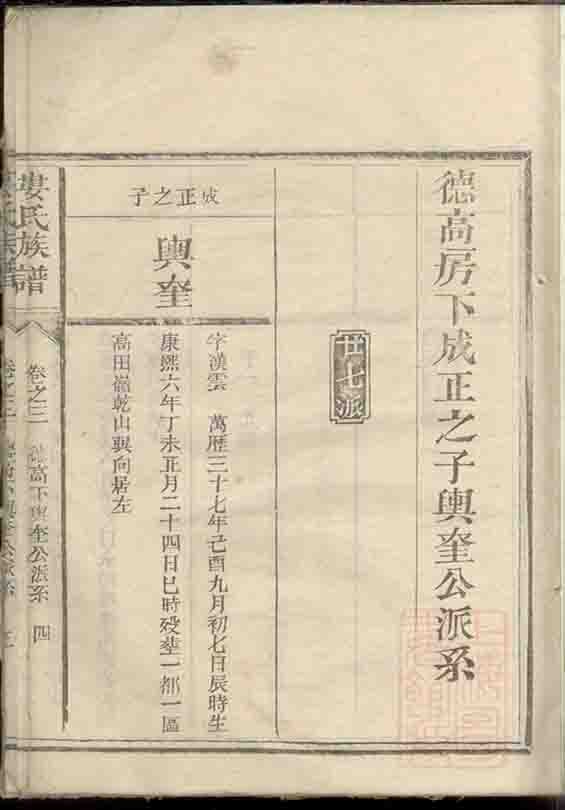 德高房下成正之子輿奎公派系
廿七派
成正之子
輿奎
字漢雲 萬歷三十七年己酉九月初七日辰時生
康熙六年丁未正月二十四日巳時歿塟一都一區
高田嶺乾山巽向居左
婁氏族譜
卷之三 德高下輿奎公派系 四